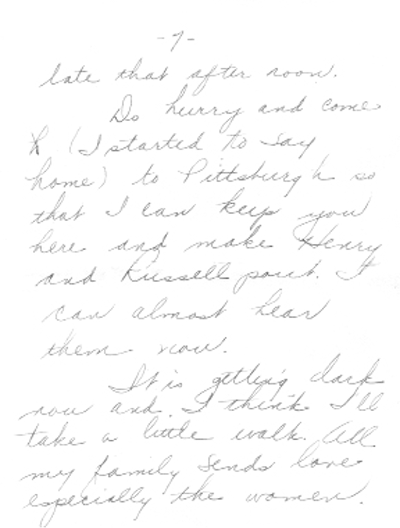 -7-
late that after noon.
Do hurry and come
h (I started to say
home) to Pittsburgh so
that I can keep you
here and make Henry
and Russell pout. I
can almost hear
them now.
It is getting dark
now and I think I'll
take a little walk. All
my family sends love
especially the women.